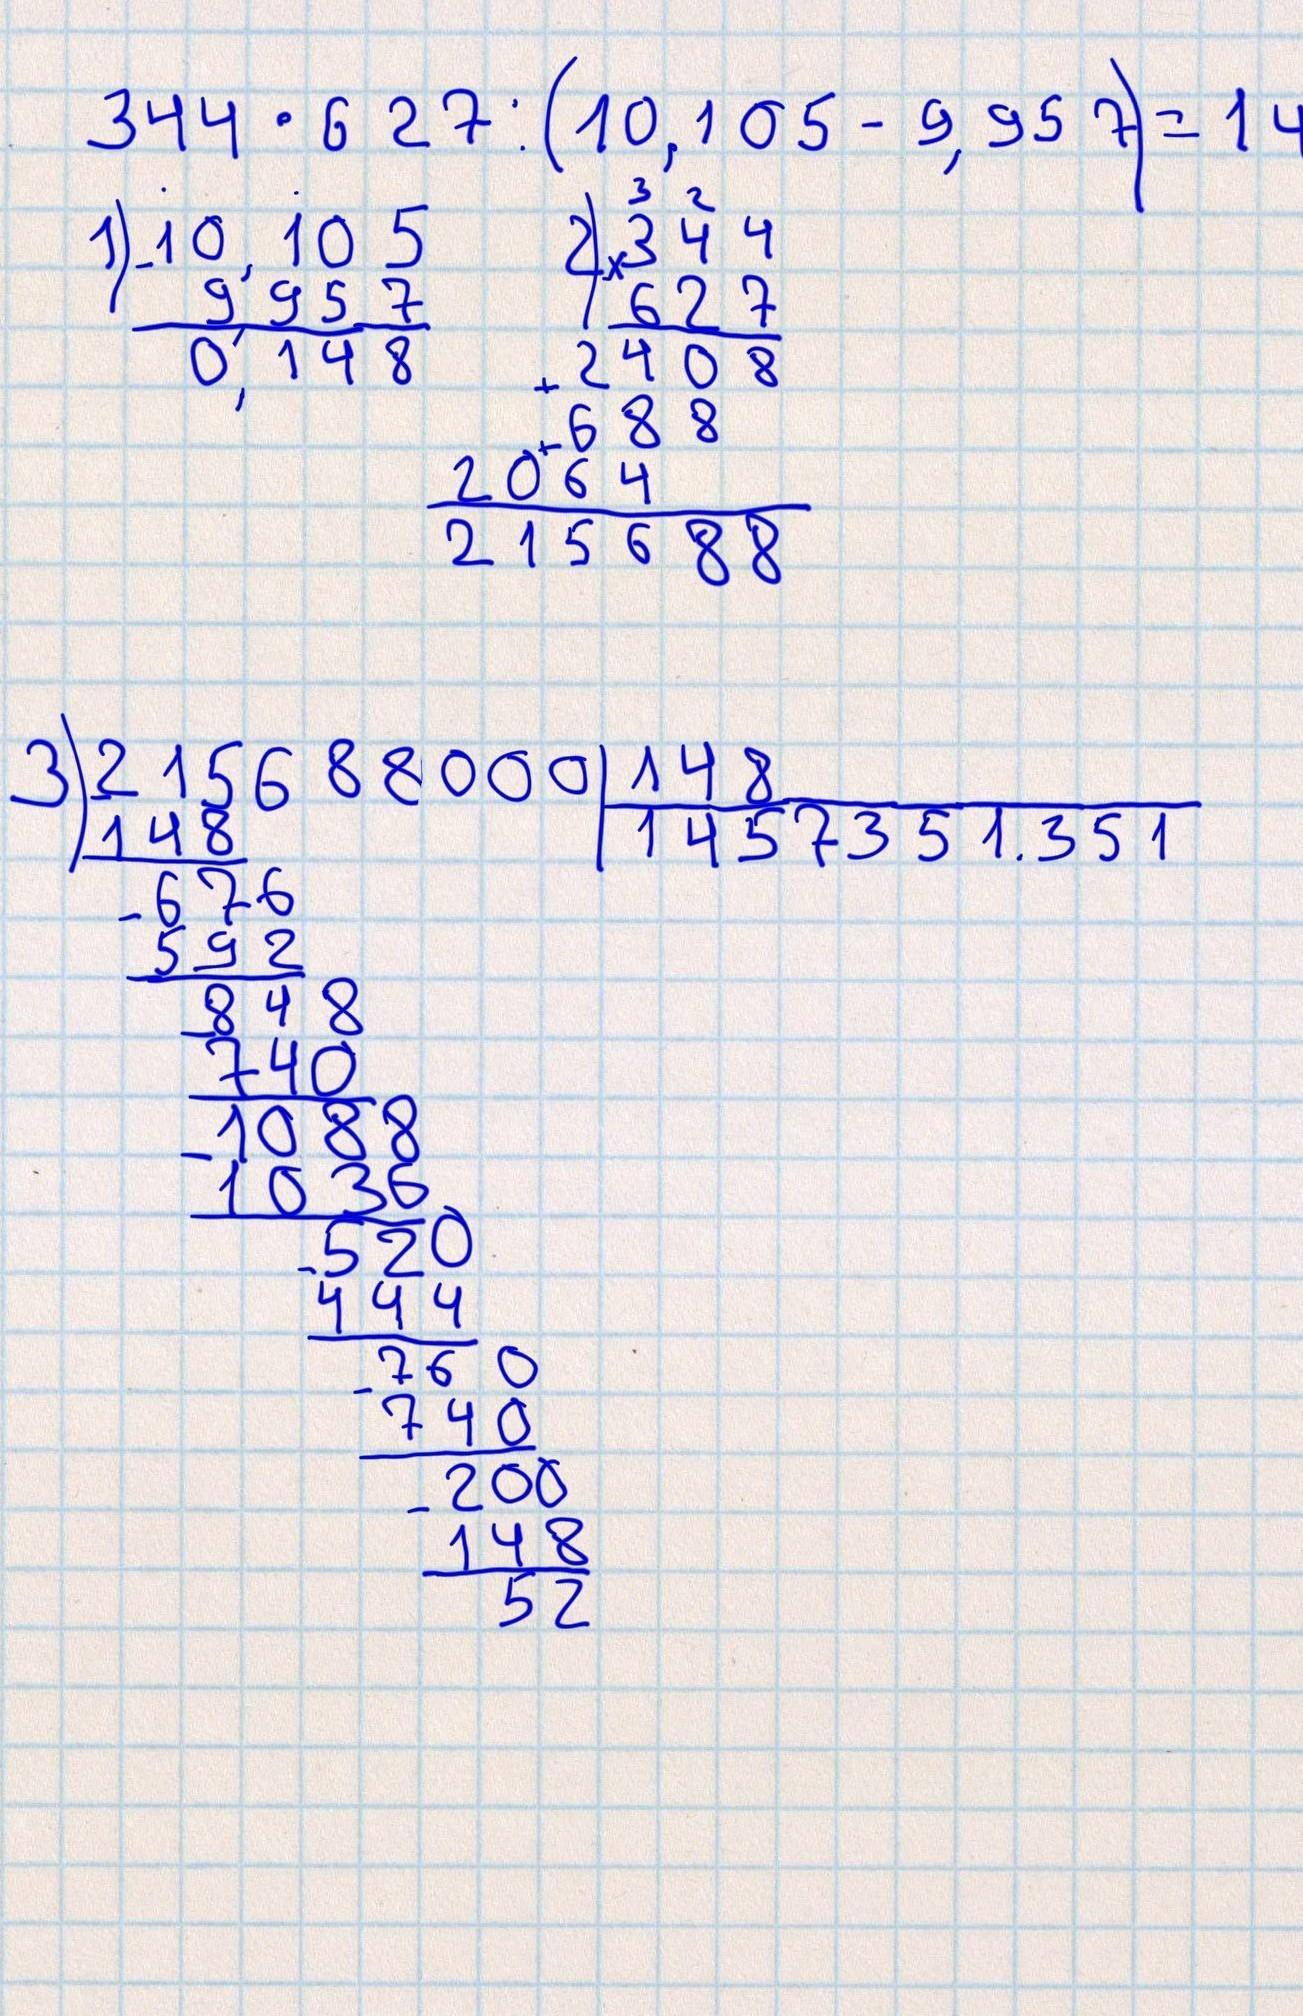 344·627:(10,105-9,957)=14
1) -10,105
9,957
0,148
3 2
2) ×344
627
2408
+688
+2064
215688
3) 215688000|148
148
1457351.351
-676
592
-848
740
-1088
1036
-520
444
-760
740
-200
148
52